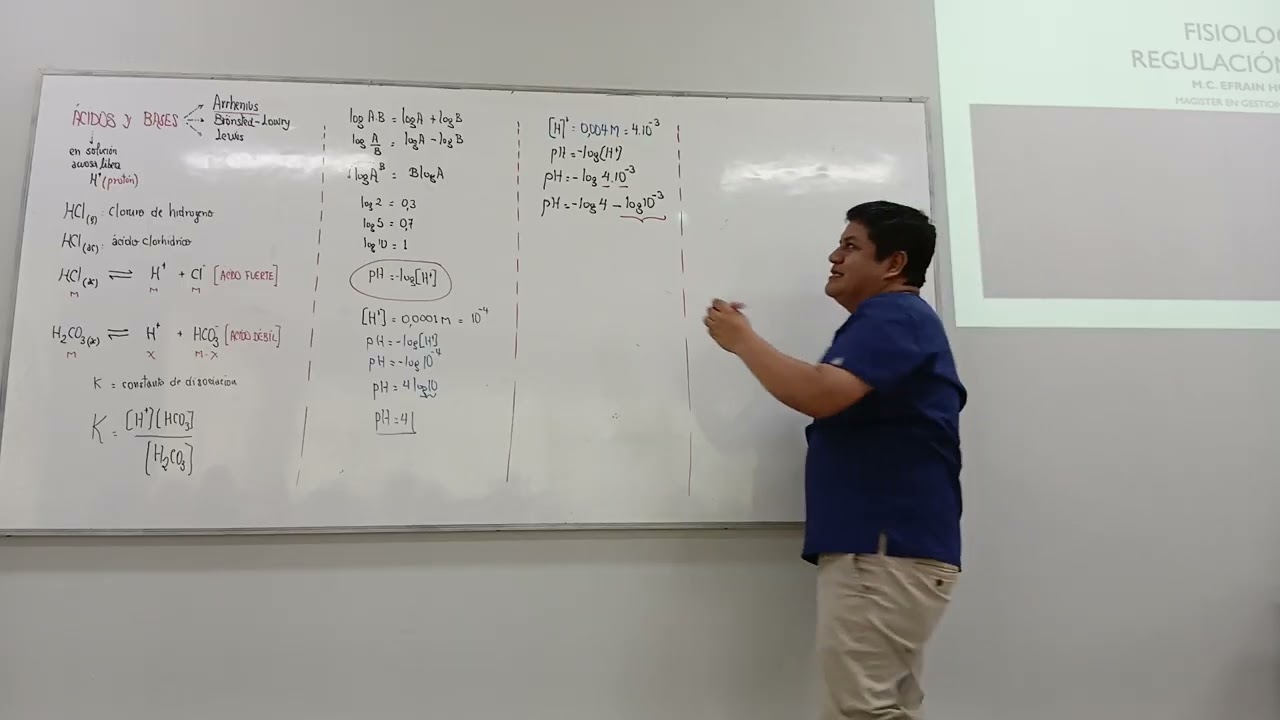 ÁCIDOS y BASES
Arrhenius
Brönsted-Lowry
Lewis
en solución
acuosa libera
H⁺ (protón)
HCl(g) : cloruro de hidrogeno
HCl(ac) : ácido clorhidrico
HCl(ac) ⇌ H⁺ + Cl⁻ [ACIDO FUERTE]
M M M
H₂CO₃(ac) ⇌ H⁺ + HCO₃⁻ [ACIDO DÉBIL]
M X M-X
K = constante de disociacion
K = [H⁺][HCO₃⁻]
[H₂CO₃]
log A.B = logA + logB
log A/B = logA - logB
logA^B = BlogA
log 2 = 0,3
log 5 = 0,7
log 10 = 1
pH = -log[H⁺]
[H⁺] = 0,0001 M = 10⁻⁴
pH = -log[H⁺]
pH = -log10⁻⁴
pH = 4 log10
pH = 4
[H]⁺ = 0,004 M = 4.10⁻³
pH = -log(H⁺)
pH = -log 4.10⁻³
pH = -log 4 - log10⁻³
FISIOLO
REGULACIÓN
M.C. EFRAIN H
MAGISTER EN GESTION